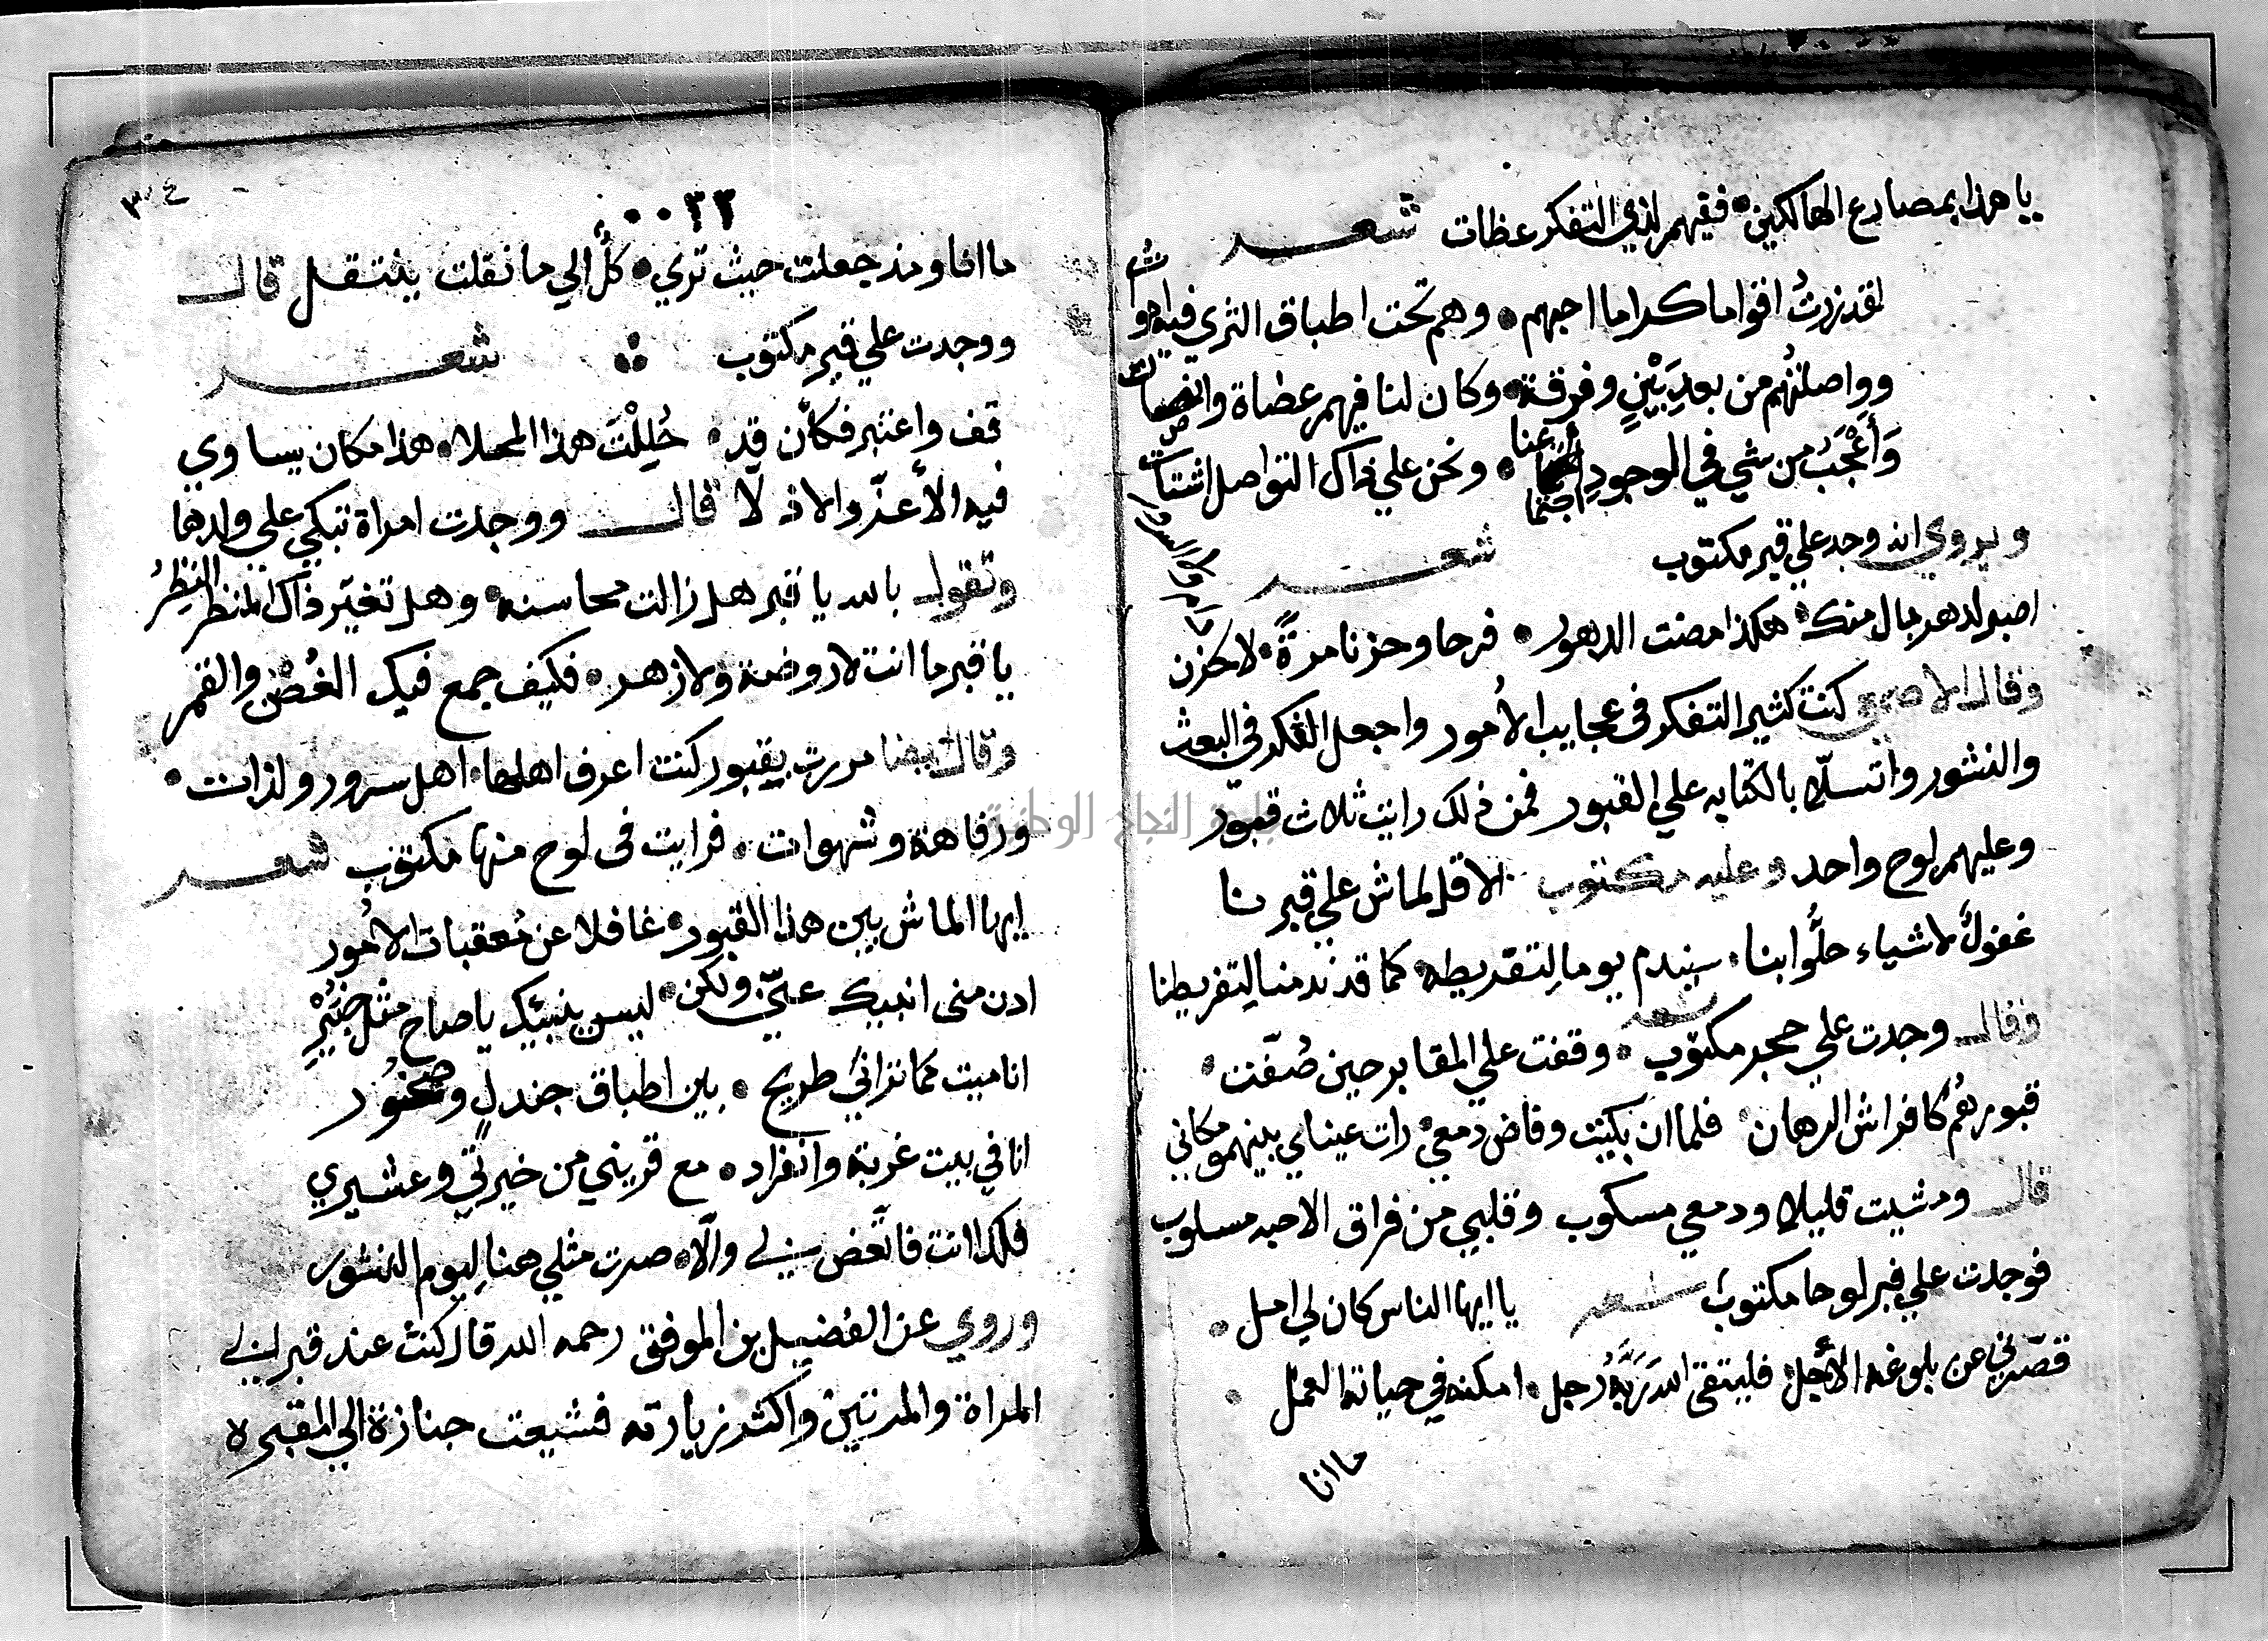 يا هذا بمصارع الهالكين • ففيهم لذي التفكر عظات شعر
لقد زرتُ اقواما كراما احبهم • وهم تحت اطباق الثري فيه اموات
وواصلتُهُم من بعدِ بَيْنٍ وفرقة • وكان لنا فيهم عظاة وانصات
وَأَعْجَبُ من شي في الوجودِ اجتماعنا • ونحن علي ذاك التواصل اشتات
ويروي انه وجد علي قبر مكتوب شعر
اصبر لدهر نال منك • هكذا مضت الدهور • فرحا وحزنا مرةً • لا الحزن
دام ولا السرور
وقال الاصمعي كنت كثير التفكر في عجايب الأمور واجعل الفكر في البعث
والنشور واتسلّا بالكتابه علي القبور فمن ذلك رايت ثلاث قبور
وعليهم لوح واحد وعليه مكتوب الا قل لماش علي قبرنا
غفولٌ لاشياء حلُّوا بنا • سيندم يوما لِتفريطه • كما قد ندمنا لِتفريطنا
وقال وجدت علي حجر مكتوب شعر • وقفت علي المقابر حين صُفّت •
قبورهُم كافراش الرهان • فلما ان بكيت وفاض دمعي • رات عيناي بينهمو مكاني
قال ومشيت قليلا ودمعي مسكوب وقلبي من فراق الاحبه مسلوب
فوجدت علي قبر لوحا مكتوب شعر يا ايها الناس كان لي امل •
قصّر بي عن بلوغه الأجل • فليتقي الله رَبَّهُ رجل • امكنه في حياته العمل •
ما انا
٣٤
٣٣
ما انا ومذ جعلت حيث تري • كلٌّ الي ما نقلت ينتقل قال
ووجدت علي قبر مكتوب شعر
قف واعتبر فكأن قد • حُلِلْتَ هذا المحلا • هذا مكان يساوي
فيه الأعزّ والاذلا قال ووجدت امراة تبكي علي ولدها
وتقول بالله يا قبر هل زالت محاسنه • وهل تغيّر ذاك المنظر النظِرُ
يا قبر ما انت لا روضة ولا زهر • فكيف جمع فيك الغُصْن والقمر
وقال ايضا مررت بقبور كنت اعرف اهلها • اهل سرور ولذات •
ورفاهة وشهوات • فرايت في لوح منها مكتوب شعر
ايها الماش بين هذا القبور • غافلا عن مُعقبات الامُور
ادن مني انبيك عنّي ولكن • ليس ينبئك يا صاح مثل خبيرِ
انا ميت كما تراني طريح • بين اطباق جندلٍ وصخُور
انا في بيت غربة وانفراد • مع قربي من جيرتي وعشيري
فكهذا انت فاتّعض بي والّا • صرت مثلي هنا ليوم النشور
وروي عن الفضيل بن الموفق رحمه الله قال كنت عند قبر ابي
المراة والمرتين واكثر زيارته فشيعت جنازة الي المقبره
جامعة النجاح الوطنية